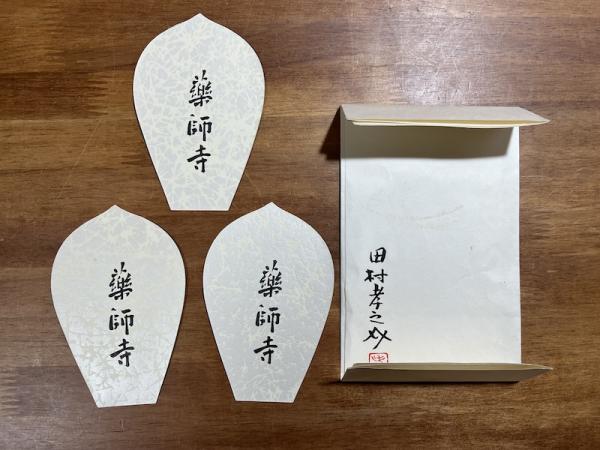 藥師寺
藥師寺
藥師寺
田村孝之介